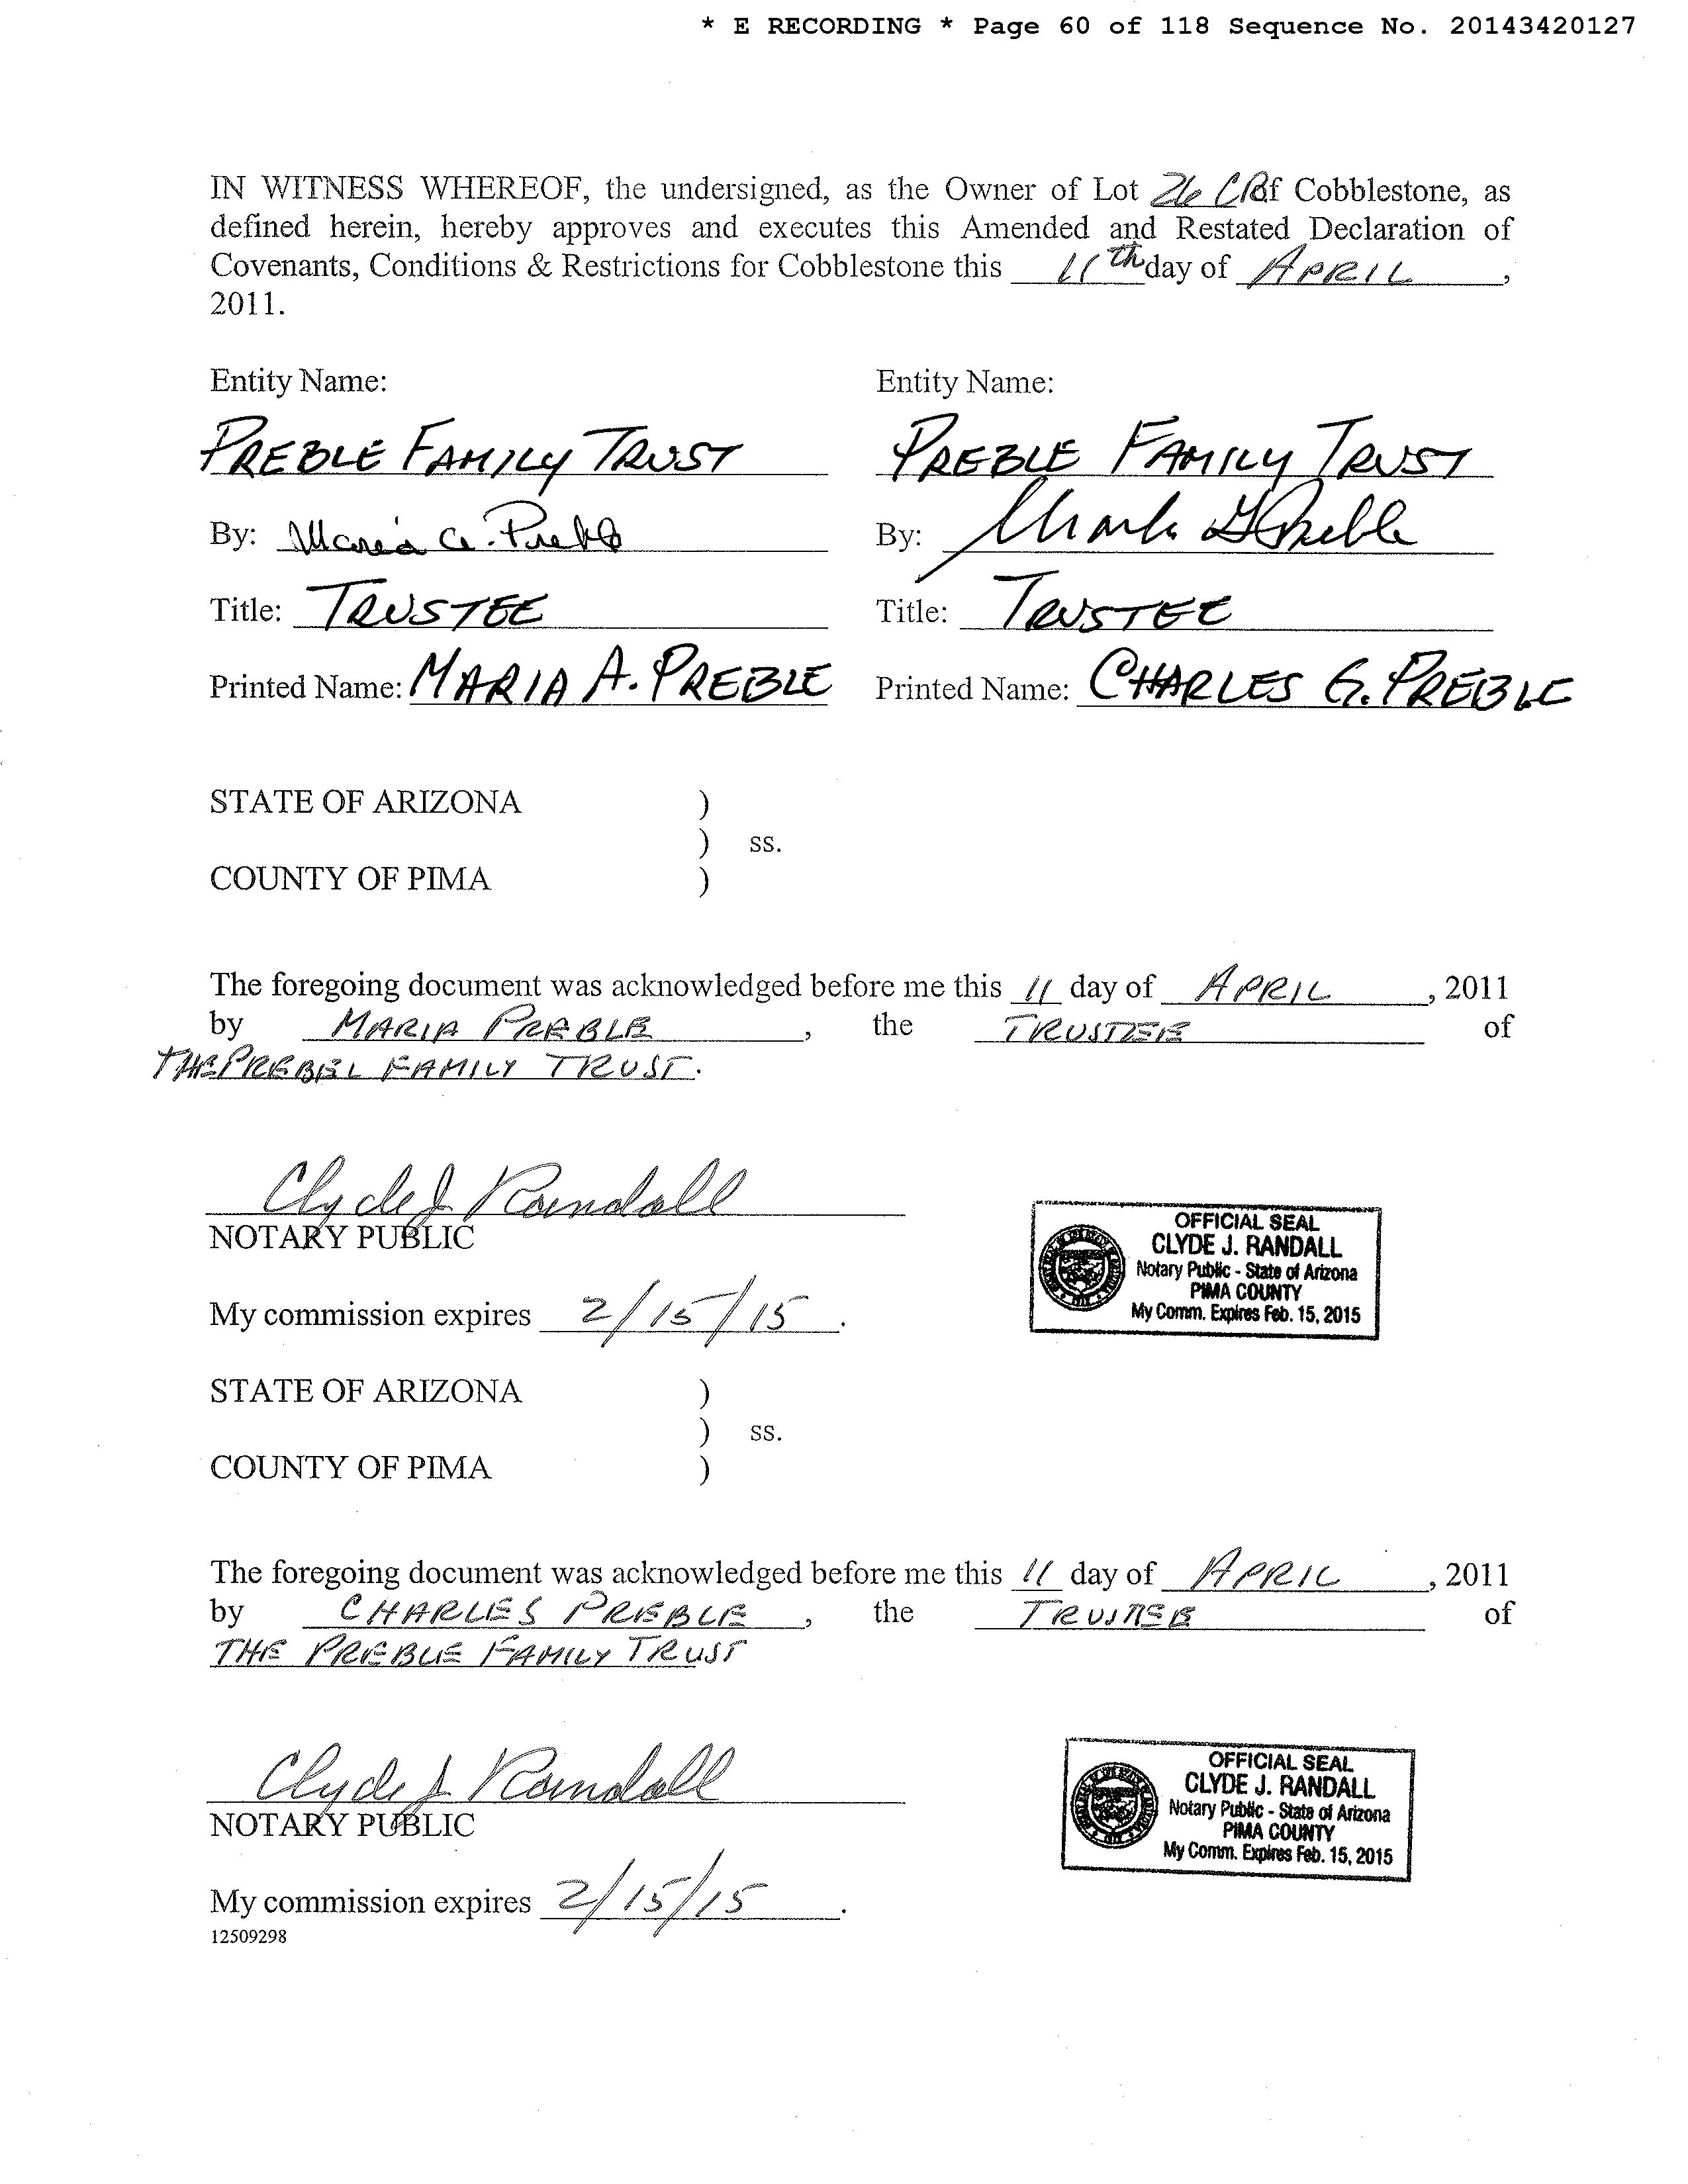 * E RECORDING * Page 60 of 118 Sequence No. 20143420127
IN WITNESS WHEREOF, the undersigned, as the Owner of Lot 26 of Cobblestone, as
defined herein, hereby approves and executes this Amended and Restated Declaration of
Covenants, Conditions & Restrictions for Cobblestone this 11th day of APRIL,
2011.
Entity Name: Entity Name:
PREBLE FAMILY TRUST PREBLE FAMILY TRUST
By: Maria A. Preble By: Charles G Preble
Title: TRUSTEE Title: TRUSTEE
Printed Name: MARIA A. PREBLE Printed Name: CHARLES G. PREBLE
STATE OF ARIZONA )
) ss.
COUNTY OF PIMA )
The foregoing document was acknowledged before me this 11 day of APRIL, 2011
by MARIA PREBLE, the TRUSTEE of
THE PREBEL FAMILY TRUST.
Clyde J. Randall
NOTARY PUBLIC
OFFICIAL SEAL
CLYDE J. RANDALL
Notary Public - State of Arizona
PIMA COUNTY
My Comm. Expires Feb. 15, 2015
My commission expires 2/15/15.
STATE OF ARIZONA )
) ss.
COUNTY OF PIMA )
The foregoing document was acknowledged before me this 11 day of APRIL, 2011
by CHARLES PREBLE, the TRUSTEE of
THE PREBLE FAMILY TRUST
Clyde J. Randall
NOTARY PUBLIC
OFFICIAL SEAL
CLYDE J. RANDALL
Notary Public - State of Arizona
PIMA COUNTY
My Comm. Expires Feb. 15, 2015
My commission expires 2/15/15.
12509298